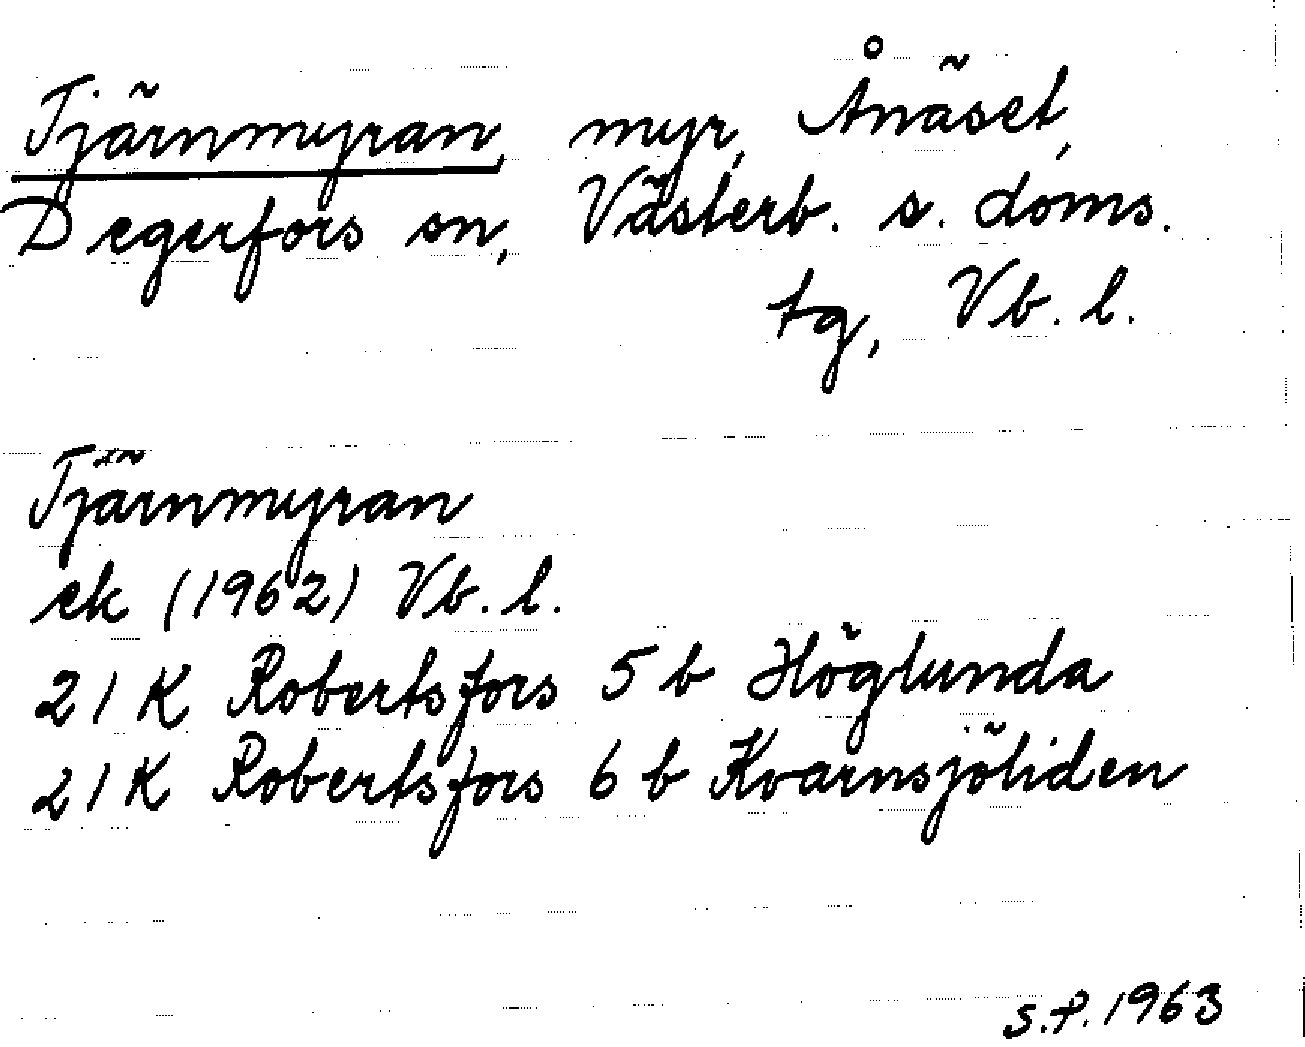 Tjärnmyran, myr, Ånäset,
Degerfors sn, Västerb. s. doms.
tg, Vb. l.
Tjärnmyran
ek (1962) Vb. l.
21 K Robertsfors 5 b Höglunda
21 K Robertsfors 6 b Kvarnsjöliden
S.P. 1963